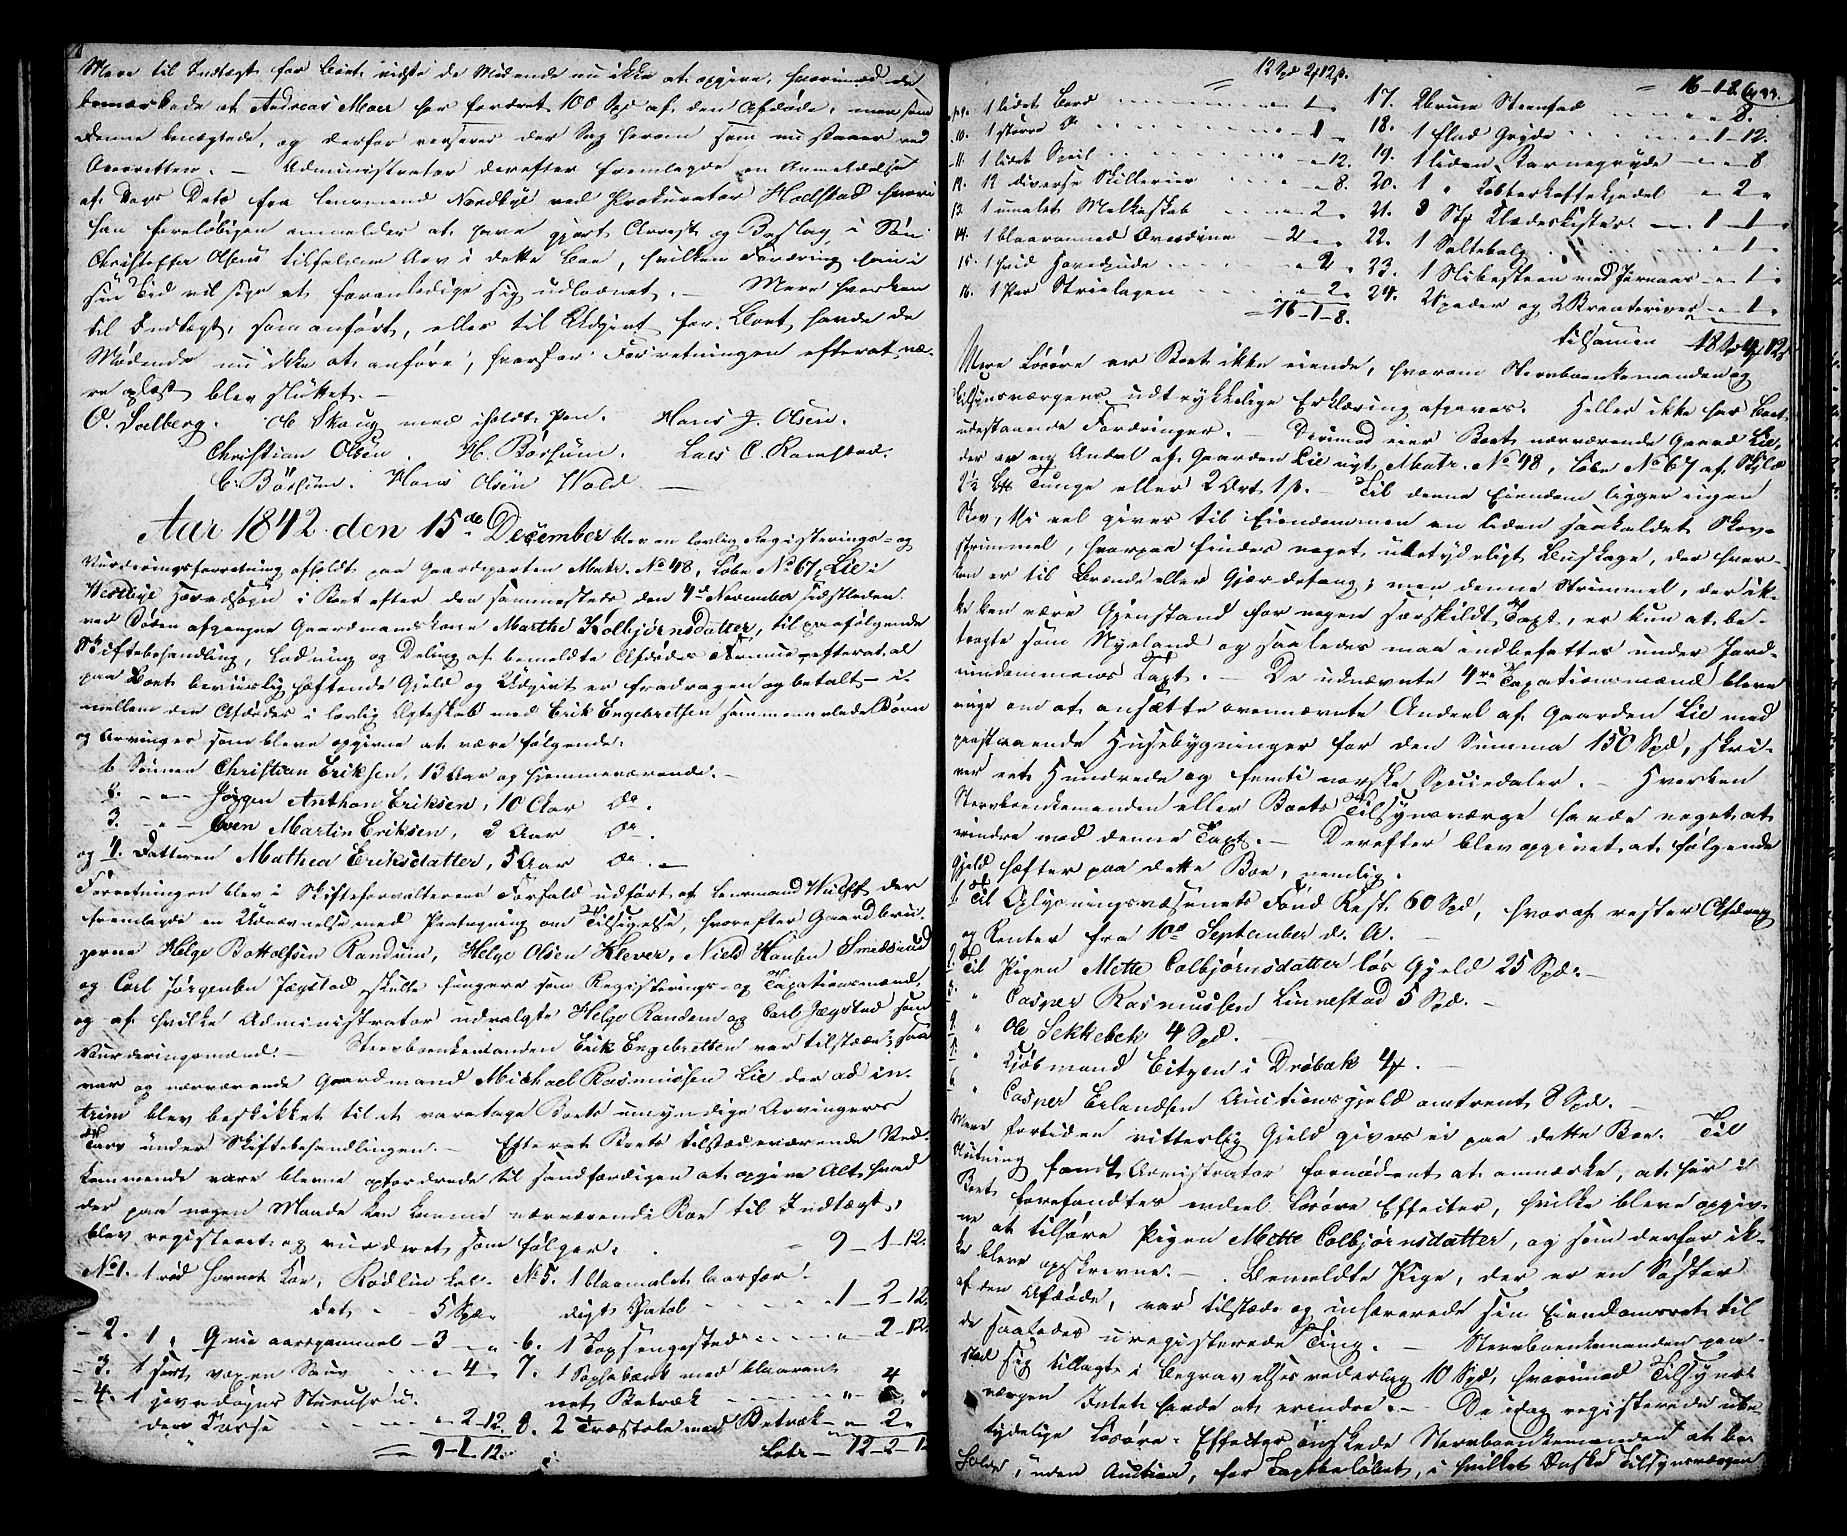 Mere til Indtægt for Boet vidste de Mødende nu ikke at opgive, hvorimod de
bemærkede at Andreas Moer har fordret 100 Spd af den Afdøde, men som
denne benægtede, og derfor verserer der Sag herom som nu staaer ved
Overretten. — Administrator derefter fremlagde en Anmeldelse
af Dags Dato fra Lensmand Nordbye ved Prokurator Hadstad hvori
han foreløbigen anmelder at have gjort Arrest og Beslag i Søn
Christoffer Olsens tilfaldne Arv i dette Boe, hvilken Fordring han i
sin Tid vil søge at foranledige sig udlagnet. — Mere hverken
til Indtægt, som anført, eller til Udgivt for Boet havde de
Mødende nu ikke at anføre, hvorfor Forretningen efterat væ-
re oplæst blev sluttet. —
O. Solberg. Ole Skoug med iholdt Pen. Hans J. Olsen.
Christian Olsen. H. Børsum. Lars C. Ramstad.
C. Børsum. Hans Olsen Wold —
Aar 1842 den 15de December blev en lovlig Registerings- og
Vurderingsforretning afholdt paa Gaardparten Matr. No 48, Løbe No 67, Lie i
Westbye Hovedsogn i Boet efter den sammesteds den 4de November sidstleden
ved Døden afgangne Gaardmandskone Marthe Kolbjørnsdatter, til paafølgende
Skiftebehandling, Lodning og Deling af bemeldte Afdødes Formue, efterat al
paa Boet beviislig hæftende Gjeld og Udgivt er fradragen og betalt — i-
mellem den Afdødes i lovlig Ægteskab med Erik Engebretsen sammenavlede Børn
og Arvinger som bleve opgivne at være følgende:
1. Sønnen Christian Eriksen, 13 Aar og hjemmeværende. —
2. — " — Jørgen Anthon Eriksen, 10 Aar do.
3. — " — Even Martin Eriksen, 2 Aar do.
og 4. Datteren Mathea Eriksdatter, 5 Aar do. —
Forretningen blev i Skifteforvalterens Forfald udført af Lensmand Wulff der
fremlagde en Udnævnelse med Paategning om Tilsigelse, hvorefter Gaardbru-
gerne Helge Bottolfsen Randum, Helge Olsen Klever, Niels Hansen Smedsrud
og Carl Jørgensen Jægstad skulle fungere som Registerings- og Taxationsmænd,
og af hvilke Administrator udvalgte Helge Randem og Carl Jægstad som
Vurderingsmænd. — Stervboenkemanden Erik Engebretsen var tilstæde; saa
var og nærværende Gaardmand Michael Rasmussen Lie der ad in-
trim blev beskikket til at varetage Boets umyndige Arvingers
Tarv under Skiftebehandlingen. — Efterat Boets tilstædeværende Ved-
kommende vare blevne opfordrede til sandfærdigen at opgive Alt hvad
der paa nogen Maade kan komme nærværende Boe til Indtægt,
blev registreret og vurderet som følger:
No 1. 1 rød hornet Koe, Rødlin kal-
det 5 Spd "
— 2. 1 " Qvie aargammel — 3 — "
— 3. 1 sort voxen Sau " — 4 —
— 4. 1
der Tarse " — 2 — 12.
9 — 1 — 12.
= 9 — 1 — 12.
No 5. 1 blaamalet laasfær-
digt Skatol 1 — 2 — 12.
— 6. 1 Topsengested " — 2 — 12.
7. 1 Sophabænk med blaarand-
net Betræk " — 4 "
8. 2 Træstole med Betræk " — 2 "
Latr — 12 — 2 — 12
12 Spd 2 12 s.
No 9. 1 lidet Bord " — 1 "
10. 1 større do — 1 —
11. 1 lidet Speil " — 12.
12. 12 diverse Skillerier " — 8.
13. 1 umalet Melkeskab " — 2 "
14. 1 blaaranned Overdyne — 2 "
15. 1 hvid Hovedpude — 2 "
16. 1 Par Strielagen — 2 "
= 16 — 1 — 8.
= 16 — 1 — 8.
17. 2 brune Steenfad " — 8.
18. 1 flad Gryde " — 1 — 12.
19. 1 liden Barnegryde " — 8
20. 1 " Kobberkaffekjedel " — 2 "
21. 3 Stk Klædeskister 1 — 1 —
22. 1 Saltebalg " — 1 "
23. 1 Slibesteen med Jernaas " — 1 "
24. 2 Spader og 2 — 1 "
tilsamen 18 Spd 4 12 s
Mere Løsøre er Boet ikke eiende, hvorom Stervboenkemanden og
Tilsynsværgens udtrykkelige Erklæring afgaves. Heller ikke har Boet
udestaaende Fordringer. — Derimod eier Boet nærværende Gaard Lie,
der er en Andel af Gaarden Lie nyt Matr. No 48, Løbe No 67 af Skyld
2½ Tunge eller 2 Ort 1 s. — Til denne Eiendom ligger ingen
Skov, thi vel gives til Eiendommen en liden saakaldet Skov-
strimmel, hvorpaa findes noget ubetydeligt Buskage, der hver-
ken er til Brænde eller Gjærdefang; men denne Strimmel, der ik-
ke kan være Gjenstand for nogen særskildt Taxt, er kun at be-
tragte som Nyeland og saaledes maa indbefattes under Jord-
eiendommens Taxt. — De udnævnte 4re Taxationsmænd bleve
enige om at ansætte ovennævnte Andeel af Gaarden Lie med
paastaaende Huusebygninger for den Summa 150 Spd, skri-
ver eet Hundrede og femti norske Speciedaler. — Hverken
Stervboenkemanden eller Boets Tilsynsværge havde noget at
erindre mod denne Taxt. — Derefter blev opgivet at følgende
Gjeld hæfter paa dette Boe, nemlig:
1. Til Oplysningsvæsenets Fond Rest. 60 Spd, hvoraf rester Afdrag
og Renter fra 10de September d. A. —
2. Til Pigen Mette Colbjørnsdatter løs Gjeld 25 Spd. —
3. " Casper Rasmussen Linnestad 5 Spd. —
4. " Ole Sekkebek 4 Spd. —
5. " Kjøbmand Eitzen i Drøbak 4 . —
6. " Casper Erlandsen Auctionsgjeld omtrent 8 Spd. —
Mere fortiden vitterlig Gjeld gives ei paa dette Boe. — Til
Slutning fandt Admistrator fornødent at anmærke, at her i
Boet forefandtes endeel Løsøre Effecter, hvilke bleve opgiv-
ne at tilhøre Pigen Mette Colbjørnsdatter, og som derfor ik-
ke bleve opskrevne. — Bemeldte Pige, der er en Søster
af den Afdøde, var tilstæde og inhærerede sin Eiendomsret til
de saaledes uregisterede Ting. — Stervboenkemanden paa-
stod sig tillagt i Begravelses vederlag 10 Spd, hvorimod Tilsyns-
værgen Intet havde at erindre. — De idag registerede ube-
tydelige Løsøre-Effecter ønskede Stervboenkemanden at be-
holde, uden Auction, for Taxtbeløbet, i hvilket Ønske Tilsynsværgen